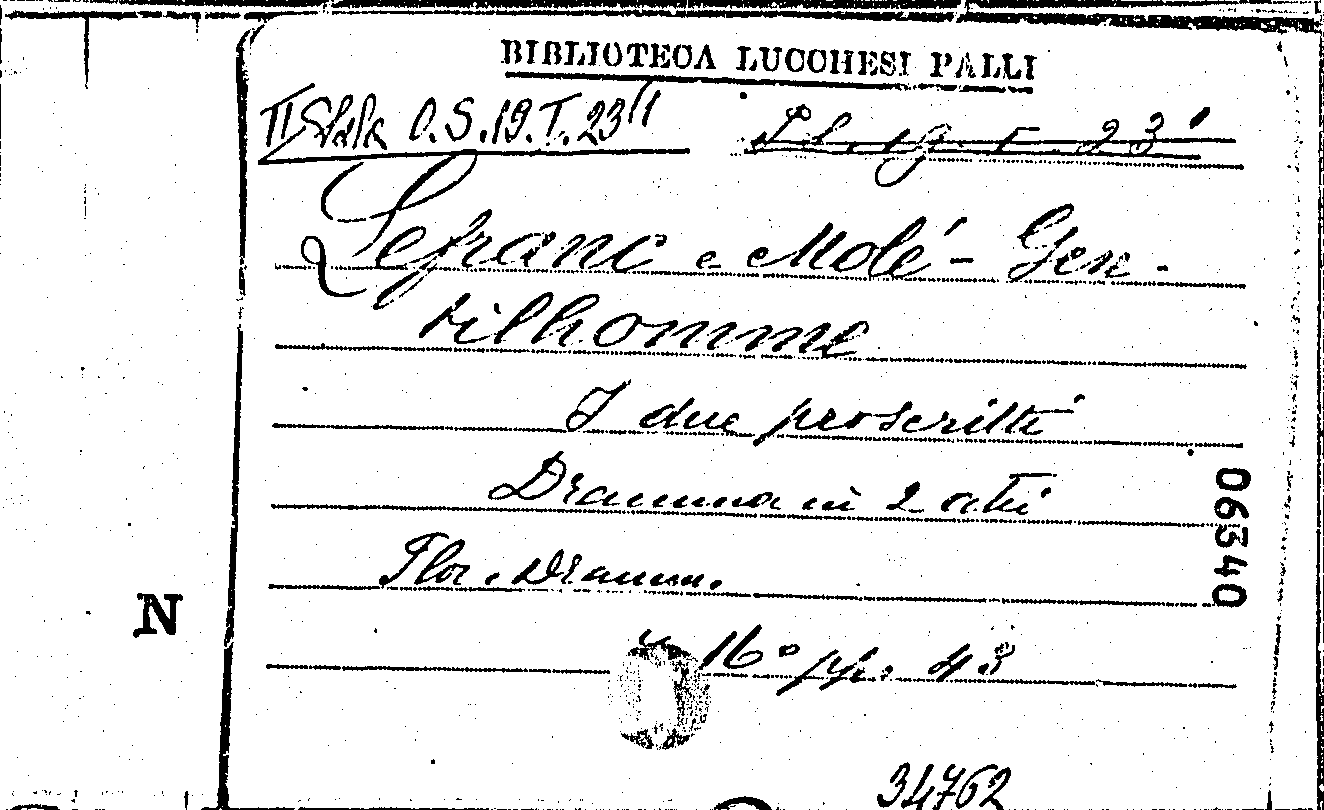 BIBLIOTECA LUCCHESI PALLI
II Sala O.S.19.T.23/1
Lefranc e Molé-Gen-
tilhomme
I due proscritti
Dramma in 2 atti
Flor. Dramm.
06340
N
in 16° pp. 43
34762